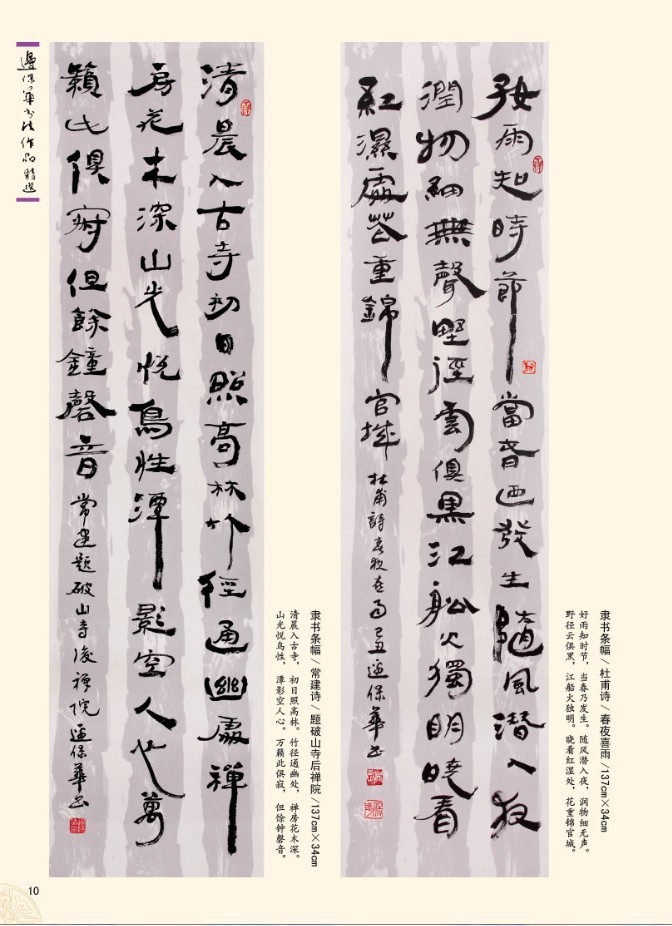 邊保華书法作品精選
好雨知時節當春迺發生隨風潛入夜
潤物細無聲野徑雲俱黑江船火獨明曉看
紅濕處花重錦官城 杜甫詩春夜喜雨 邊保華书
隶书条幅 / 杜甫诗 / 春夜喜雨 /137cm×34cm
好雨知时节，当春乃发生。随风潜入夜，润物细无声。
野径云俱黑，江船火独明。晓看红湿处，花重锦官城。
清晨入古寺初日照高林竹徑通幽處禪
房花木深山光悅鳥性潭影空人心萬
籟此俱寂但餘鐘磬音 常建題破山寺後禪院 邊保華书
隶书条幅 / 常建诗 / 题破山寺后禅院 /137cm×34cm
清晨入古寺，初日照高林。竹径通幽处，禅房花木深。
山光悦鸟性，潭影空人心。万籁此俱寂，但馀钟磬音。
10